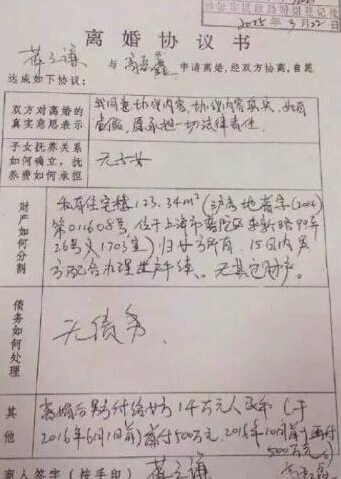 2015 9月22日
离婚协议书
与 申请离婚,经双方协商,自愿
达成如下协议:
双方对离婚的
真实意思表示
我同意协议内容,协议内容真实,如有
虚假,愿承担一切法律责任.
子女抚养关系
如何确立,抚
养费如何承担
无子女
财产如何分割
私有住宅楼123.34m²(沪房地普字(2014)
第011608号,位于上海市普陀区 路99弄
26号 1703室)归女方所有,15日内男
方配合办理 手续。无其它财产。
债务如何处理
无债务.
其他
离婚后男方付给女方1千万元人民币(于
2016年6月1日前付500万元,2016年10月 前再付
500万元)
商人签字(按手印)